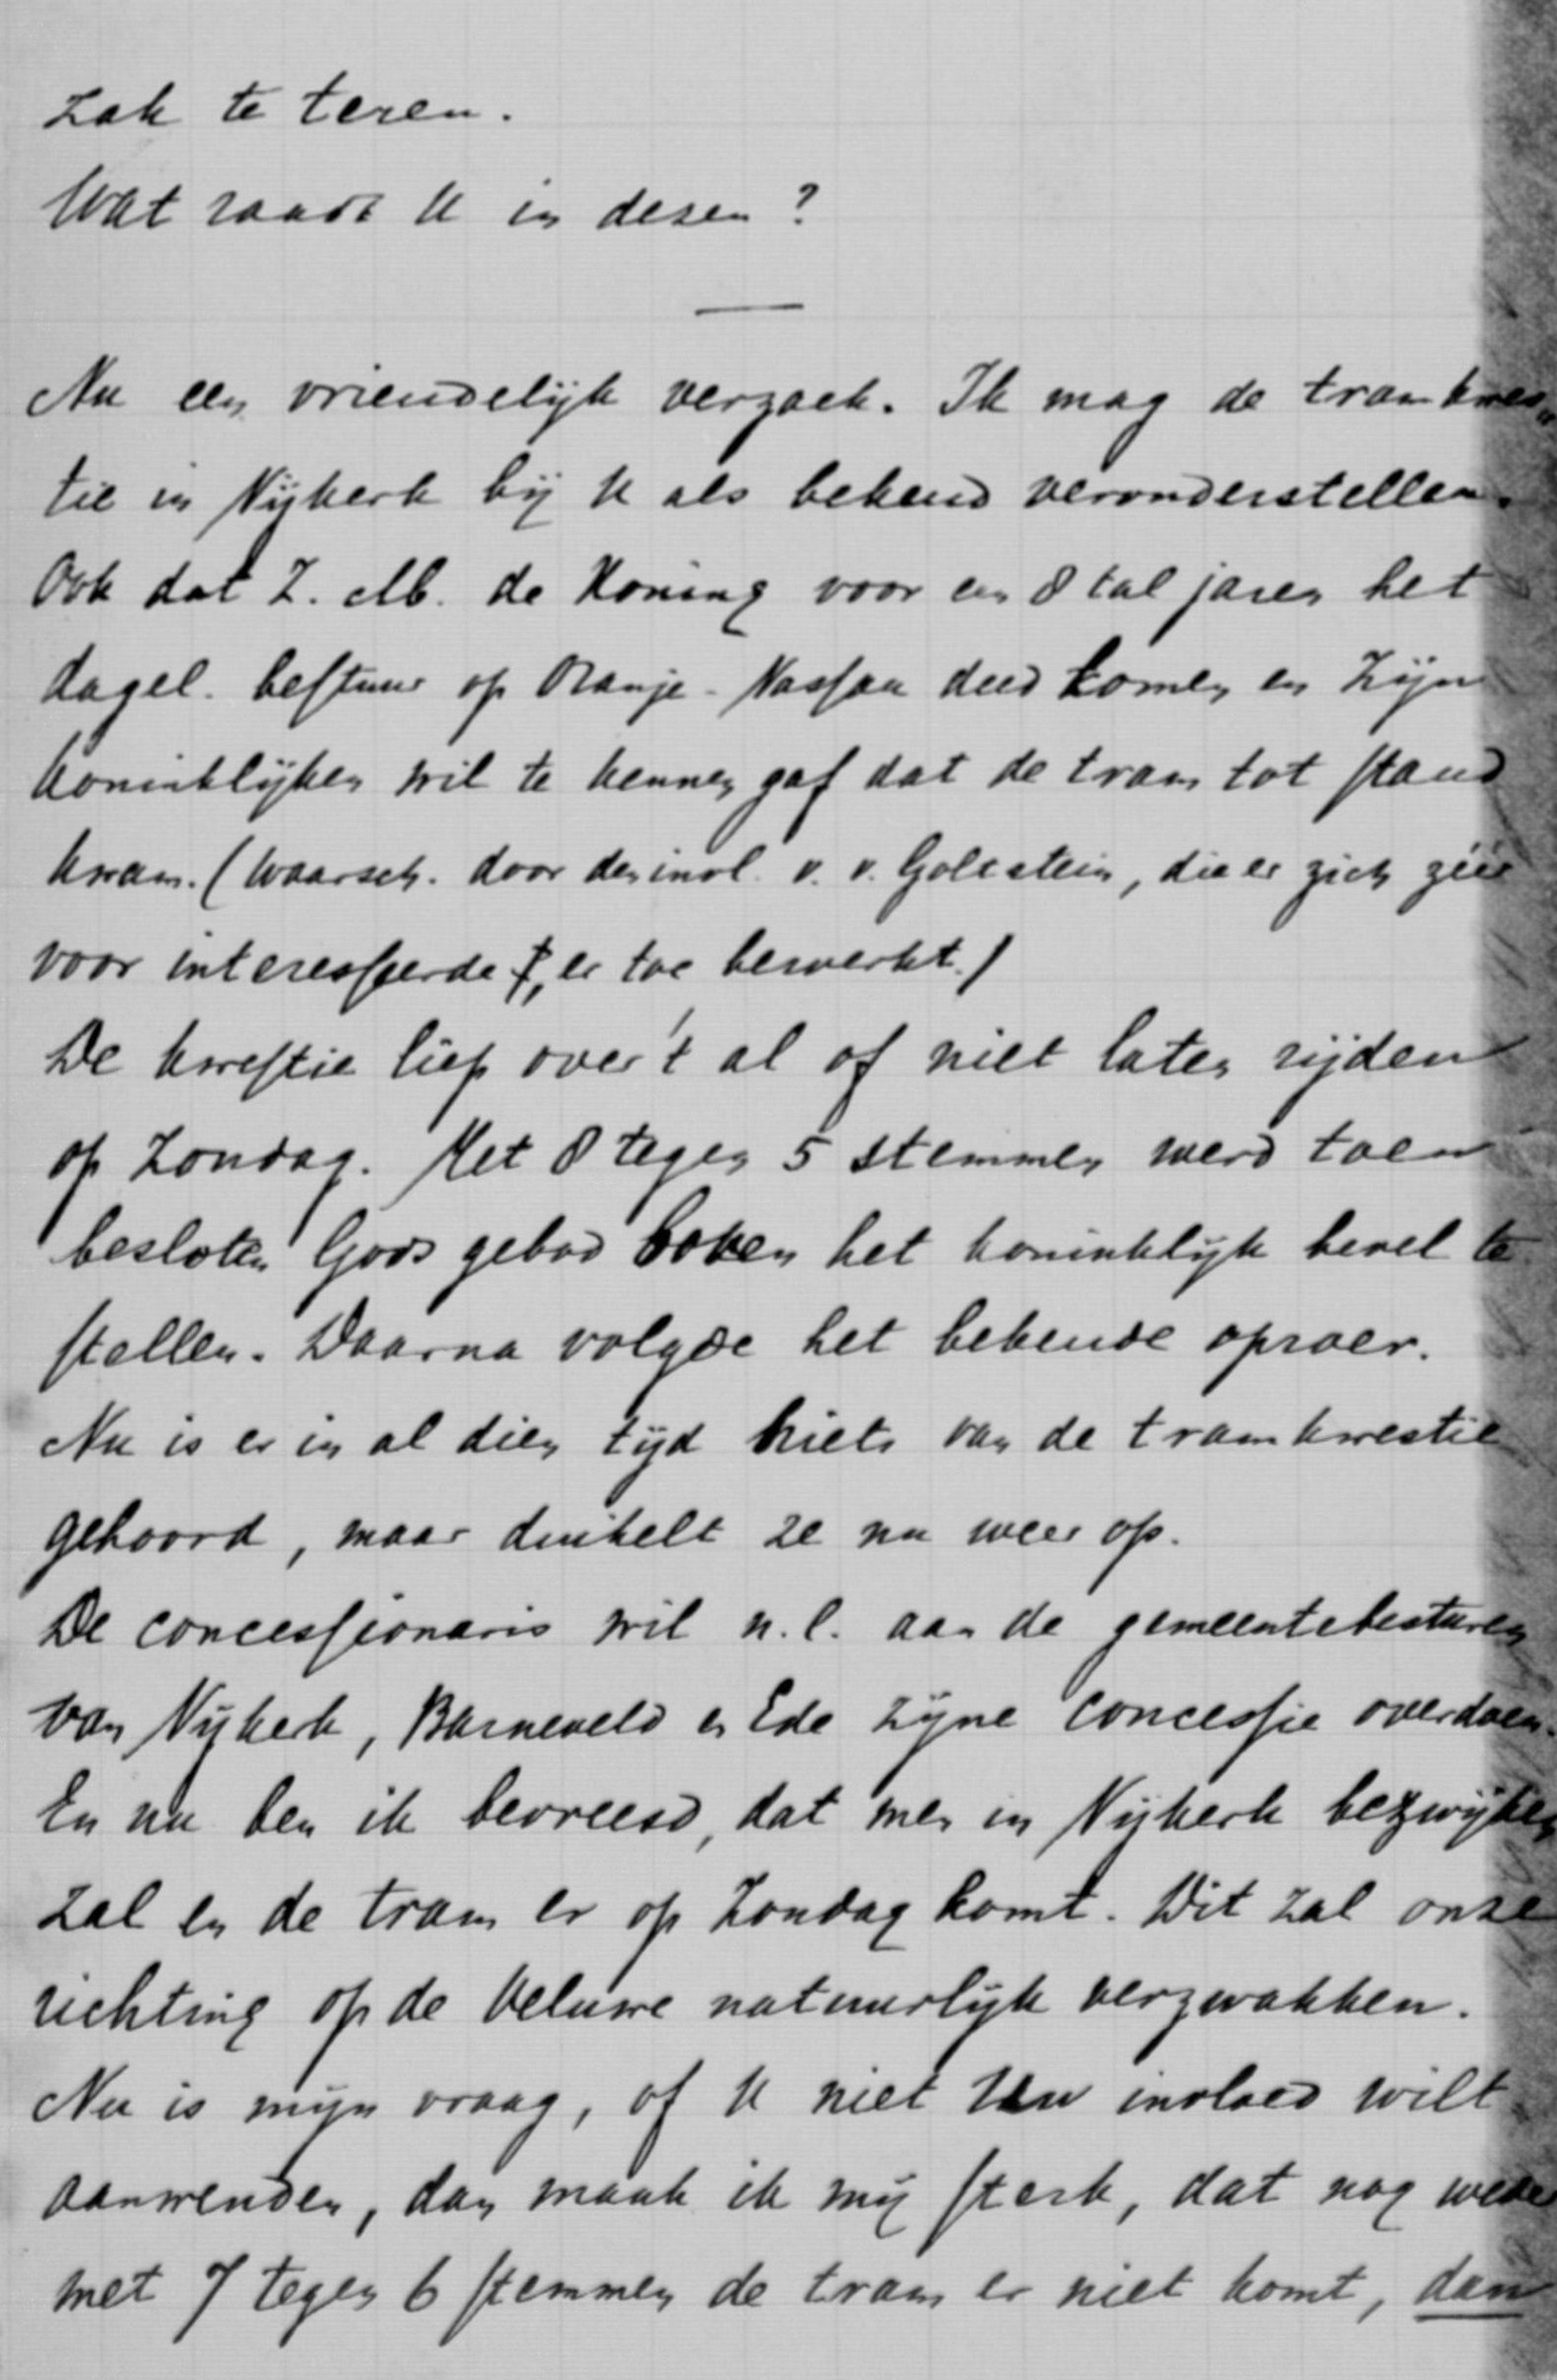 zak te teren.
Wat raadt U in dezen?
Nu een vriendelijk verzoek. Ik mag de tramkwes„
tie in Nijkerk bij U als bekend veronderstellen.
Ook dat Z. M. de Koning voor een 8 tal jaren het
dagel. bestuur op Oranje-Nassau deed komen en Zijn
koninklijken wil te kennen gaf dat de tram tot stand
kwam. (Waarsch. door den invl. v. v. Goltstein, die er zich zéér
voor interesseerde, er toe bewerkt.)
De kwestie liep over 't al of niet laten rijden
op Zondag. Met 8 tegen 5 stemmen werd toen
besloten Gods gebod boven het koninklijk bevel te
stellen. Daarna volgde het bekende oproer.
Nu is er in al dien tijd niets van de tramkwestie
gehoord, maar duikelt ze nu weer op.
De concessionaris wil n.l. aan de gemeentebesturen
van Nijkerk, Barneveld en Ede zijne concessie overdoen.
En nu ben ik bevreesd, dat men in Nijkerk bezwijken
zal en de tram er op Zondag komt. Dit zal onze
richting op de Veluwe natuurlijk verzwakken.
Nu is mijn vraag, of U niet Uw invloed wilt
aanwenden, dan maak ik mij sterk, dat nog weder
met 7 tegen 6 stemmen de tram er niet komt, dan